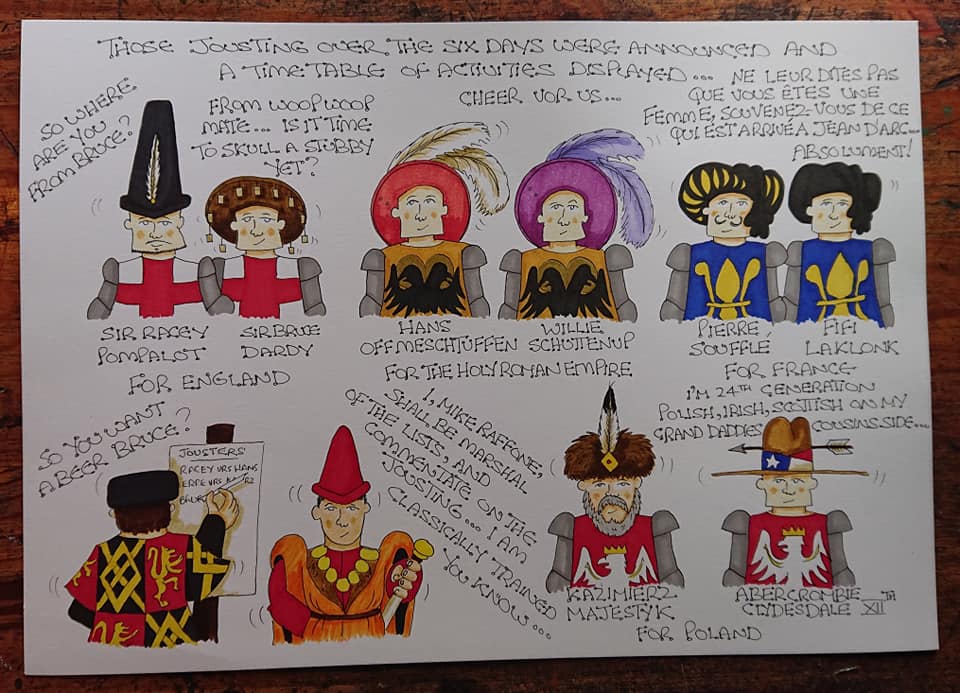 THOSE JOUSTING OVER THE SIX DAYS WERE ANNOUNCED AND
A TIMETABLE OF ACTIVITIES DISPLAYED...
SO WHERE
ARE YOU
FROM BRUCE?
FROM WOOP WOOP
MATE... IS IT TIME
TO SKULL A STUBBY
YET?
CHEER VOR US...
NE LEUR DITES PAS
QUE VOUS ÊTES UNE
FEMME, SOUVENEZ-VOUS DE CE
QUI EST ARRIVÉ A JEAN D'ARC...
ABSOLUMENT!
SIR RACEY
POMPALOT
SIR BRUE
DARDY
FOR ENGLAND
HANS
OFFMESCHTÜFFEN
WILLIE
SCHÜTTENUP
FOR THE HOLY ROMAN EMPIRE
PIERRE
SOUFFLÉ
FIFI
LAKLONK
FOR FRANCE
SO YOU WANT
A BEER BRUCE?
JOUSTERS
RACEY VRS HANS
VRS
I, MIKE RAFFONE,
SHALL BE MARSHAL
OF THE LISTS, AND
COMMENTATE ON THE
JOUSTING... I AM
CLASSICALLY TRAINED
YOU KNOW...
I'M 24TH GENERATION
POLISH, IRISH, SCOTTISH ON MY
GRAND DADDIES COUSINS SIDE...
KAZIMIERZ
MAJESTYK
ABERCROMBIE
CLYDESDALE XII TH
FOR POLAND